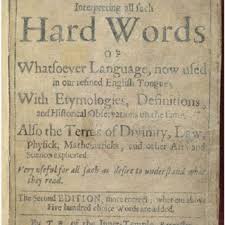 Interpreting all such
Hard Words
OF
Whatsoever Language, now used
in our refined English Tongue;
With Etymologies, Definitions,
and Historical Observations on the same.
Also the Terms of Divinity, Law,
Physick, Mathematicks, and other Arts and
Sciences explicated.
Very useful for all such as desire to understand what
they read.
The Second EDITION, more correct; wherein above
Five hundred choice Words are added.
By T.B. of the Inner-Temple,